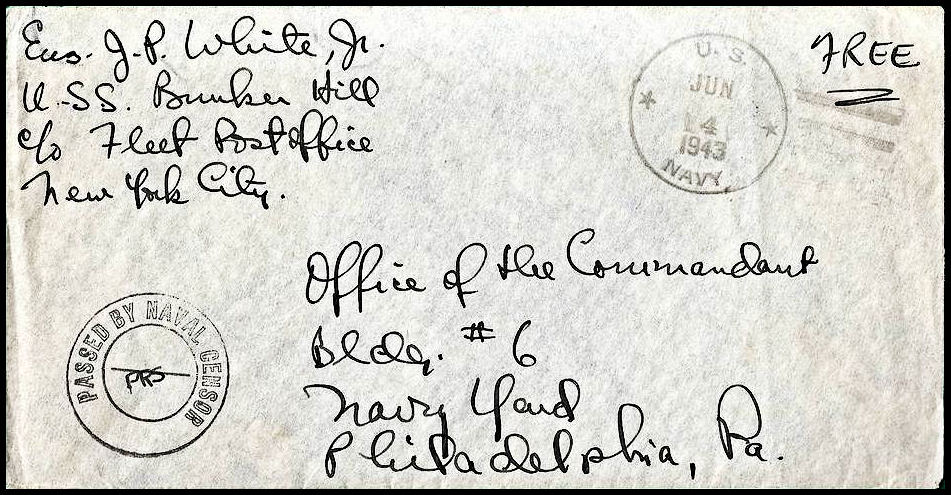 Ens. J.P. White, Jr.
U.SS. Bunker Hill
c/o Fleet Post Office
New York City.
FREE
U.S.
JUN
14
1943
NAVY
Office of the Commandant
Bldg. # 6
Navy Yard
Philadelphia, Pa.
PASSED BY NAVAL CENSOR
PRS